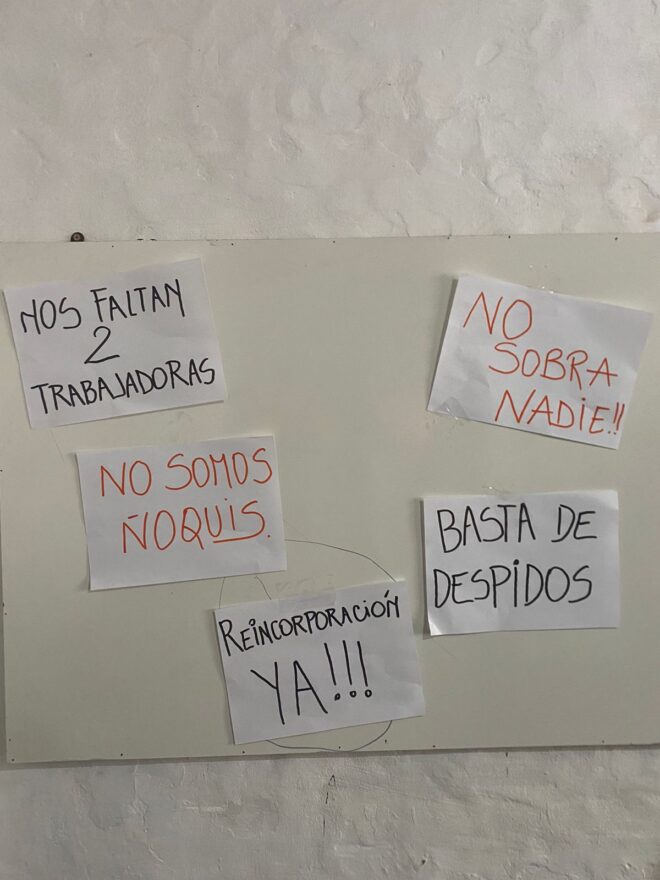 NOS FALTAN
2
TRABAJADORAS
NO
SOBRA
NADIE!!
NO SOMOS
ÑOQUIS.
BASTA DE
DESPIDOS
REINCORPORACIÓN
YA!!!